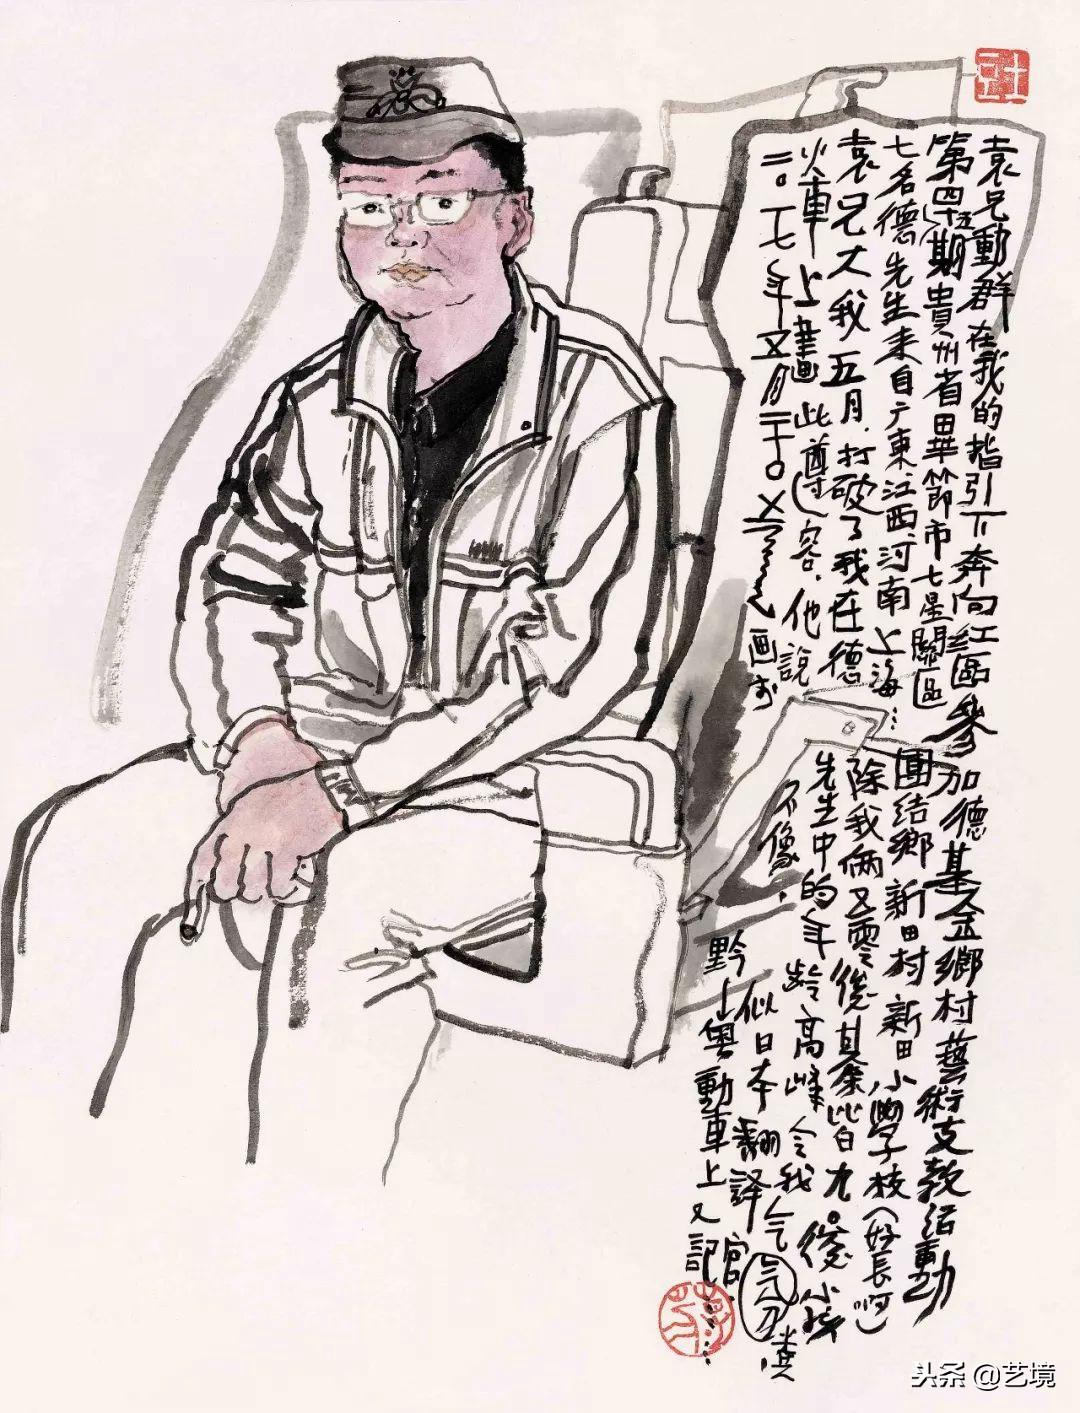 袁兄動群在我的指引下奔向紅區參加德基金鄉村藝術支教活動
第四十五期貴州省畢節市七星關區團結鄉新田村新田小學校(好長啊)
七名德先生来自广東.江西.河南上海…除我俩五零後其余皆九〇後小孩
袁兄大我五月.打破了我在德先生中的年龄高峰令我气
火車上畫此尊容.他說不像.似日本翻譯官……
二〇一七年五月二十〇画於黔粤動車上又記……
头条 @艺境